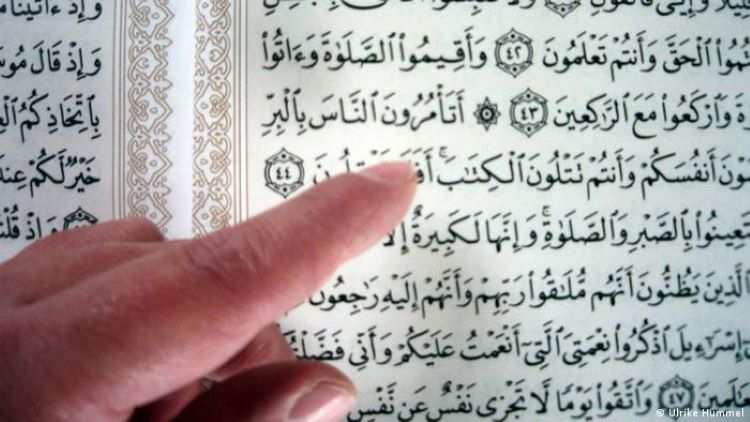 فَاتَّقُونِ
تُمُوا۟ ٱلْحَقَّ وَأَنتُمْ تَعْلَمُونَ ٤٢ وَأَقِيمُوا۟ ٱلصَّلَوٰةَ وَءَاتُوا۟
وَٱرْكَعُوا۟ مَعَ ٱلرَّٰكِعِينَ ٤٣ ۞ أَتَأْمُرُونَ ٱلنَّاسَ بِٱلْبِرِّ
سَوْنَ أَنفُسَكُمْ وَأَنتُمْ تَتْلُونَ ٱلْكِتَٰبَ ۚ ٤٤
تَعِينُوا۟ بِٱلصَّبْرِ وَٱلصَّلَوٰةِ ۚ وَإِنَّهَا لَكَبِيرَةٌ
ٱلَّذِينَ يَظُنُّونَ أَنَّهُم مُّلَٰقُوا۟ رَبِّهِمْ وَأَنَّهُمْ إِلَيْهِ رَٰجِعُونَ
إِسْرَٰٓءِيلَ ٱذْكُرُوا۟ نِعْمَتِىَ ٱلَّتِىٓ أَنْعَمْتُ عَلَيْكُمْ وَأَنِّى فَضَّلْتُ
لَمِينَ ٤٧ وَٱتَّقُوا۟ يَوْمًا لَّا تَجْزِى نَفْسٌ عَن نَّفْسٍ
وَإِذْ ءَاتَيْنَا
وَإِذْ قَالَ مُوسَ
بِٱتِّخَاذِكُمُ
خَيْرٌ لَّكُمْ عِندَ
وَإِذْ قُلْتُ
© Ulrike Hummel